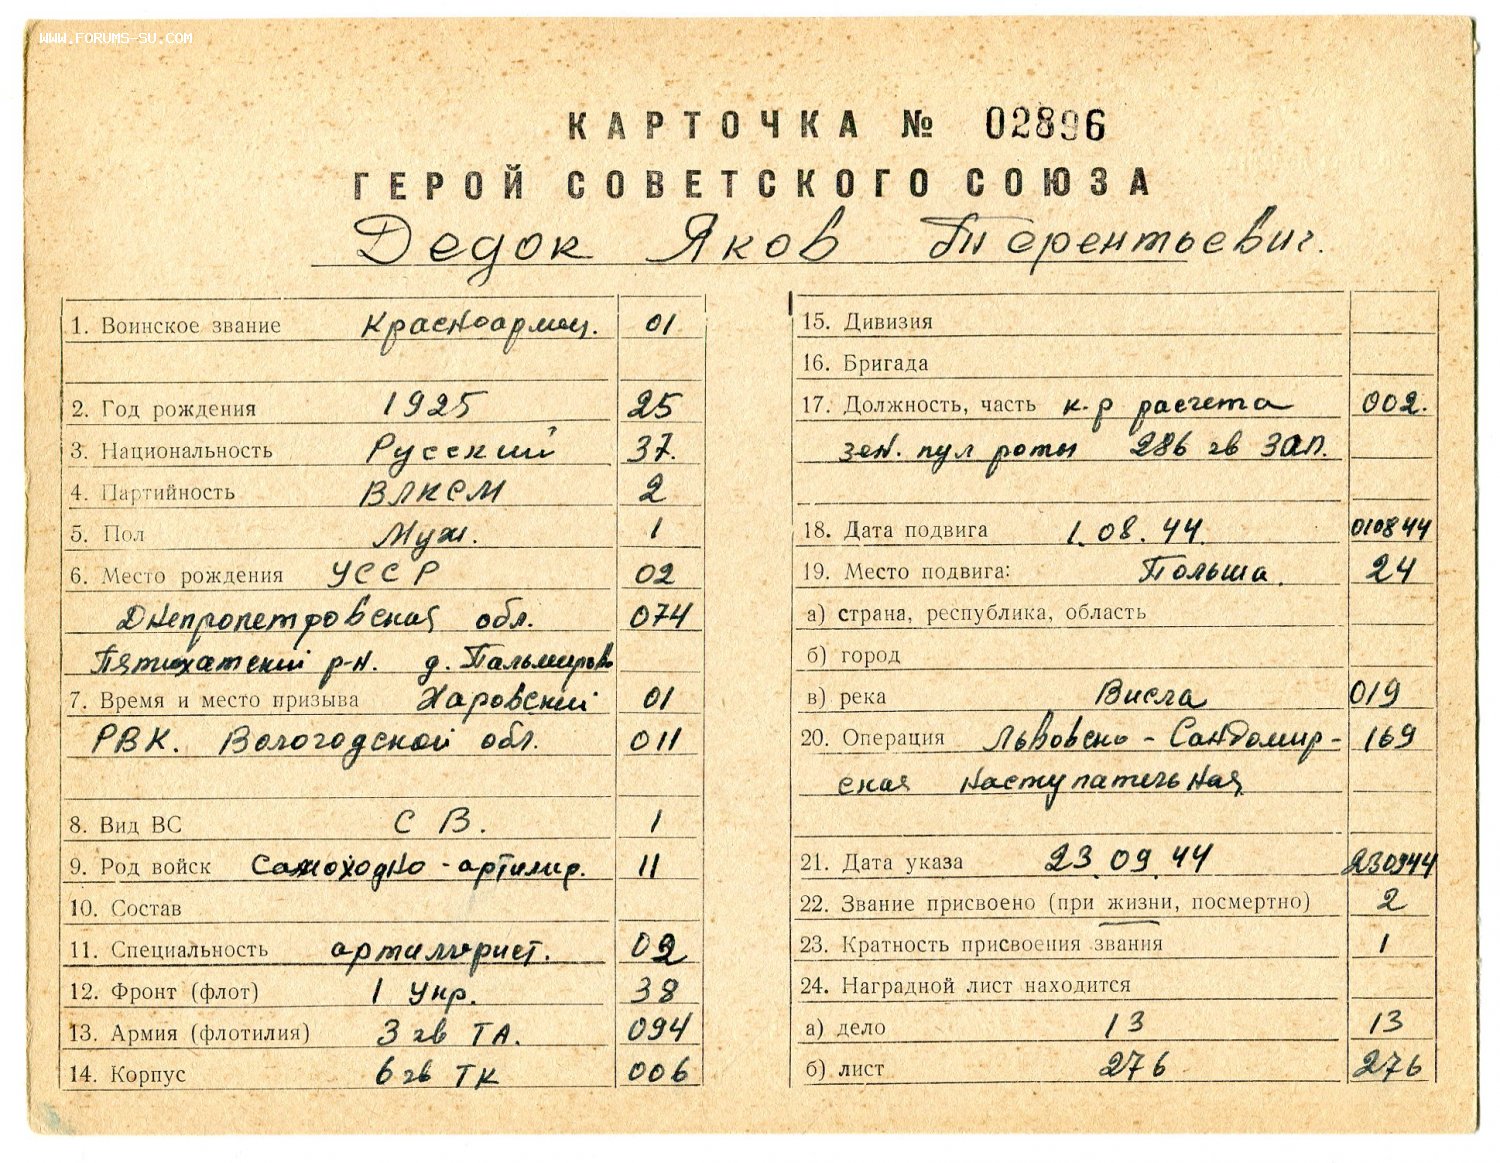 WWW.FORUMS-SU.COM
КАРТОЧКА № 02896
ГЕРОЙ СОВЕТСКОГО СОЮЗА
Дедок Яков Терентьевич.
1. Воинское звание Красноармец. 01
2. Год рождения 1925 25
3. Национальность Русский 37.
4. Партийность ВЛКСМ 2
5. Пол Муж. 1
6. Место рождения УССР 02
Днепропетровская обл. 074
Пятихатский р-н. д. Пальмирово
7. Время и место призыва Харовский 01
РВК. Вологодской обл. 011
8. Вид ВС С В. 1
9. Род войск Самоходно-артилир. 11
10. Состав
11. Специальность артиллерист. 02
12. Фронт (флот) 1 Укр. 38
13. Армия (флотилия) 3 гв ТА. 094
14. Корпус 6 гв ТК 006
15. Дивизия
16. Бригада
17. Должность, часть к-р расчета 002.
зен. пул роты 286 гв ЗАП.
18. Дата подвига 1.08.44 010844
19. Место подвига: Польша. 24
а) страна, республика, область
б) город
в) река Висла 019
20. Операция Львовско-Сандомир- 169
ская наступательная
21. Дата указа 23.09.44 230944
22. Звание присвоено (при жизни, посмертно) 2
23. Кратность присвоения звания 1
24. Наградной лист находится
а) дело 13 13
б) лист 276 276